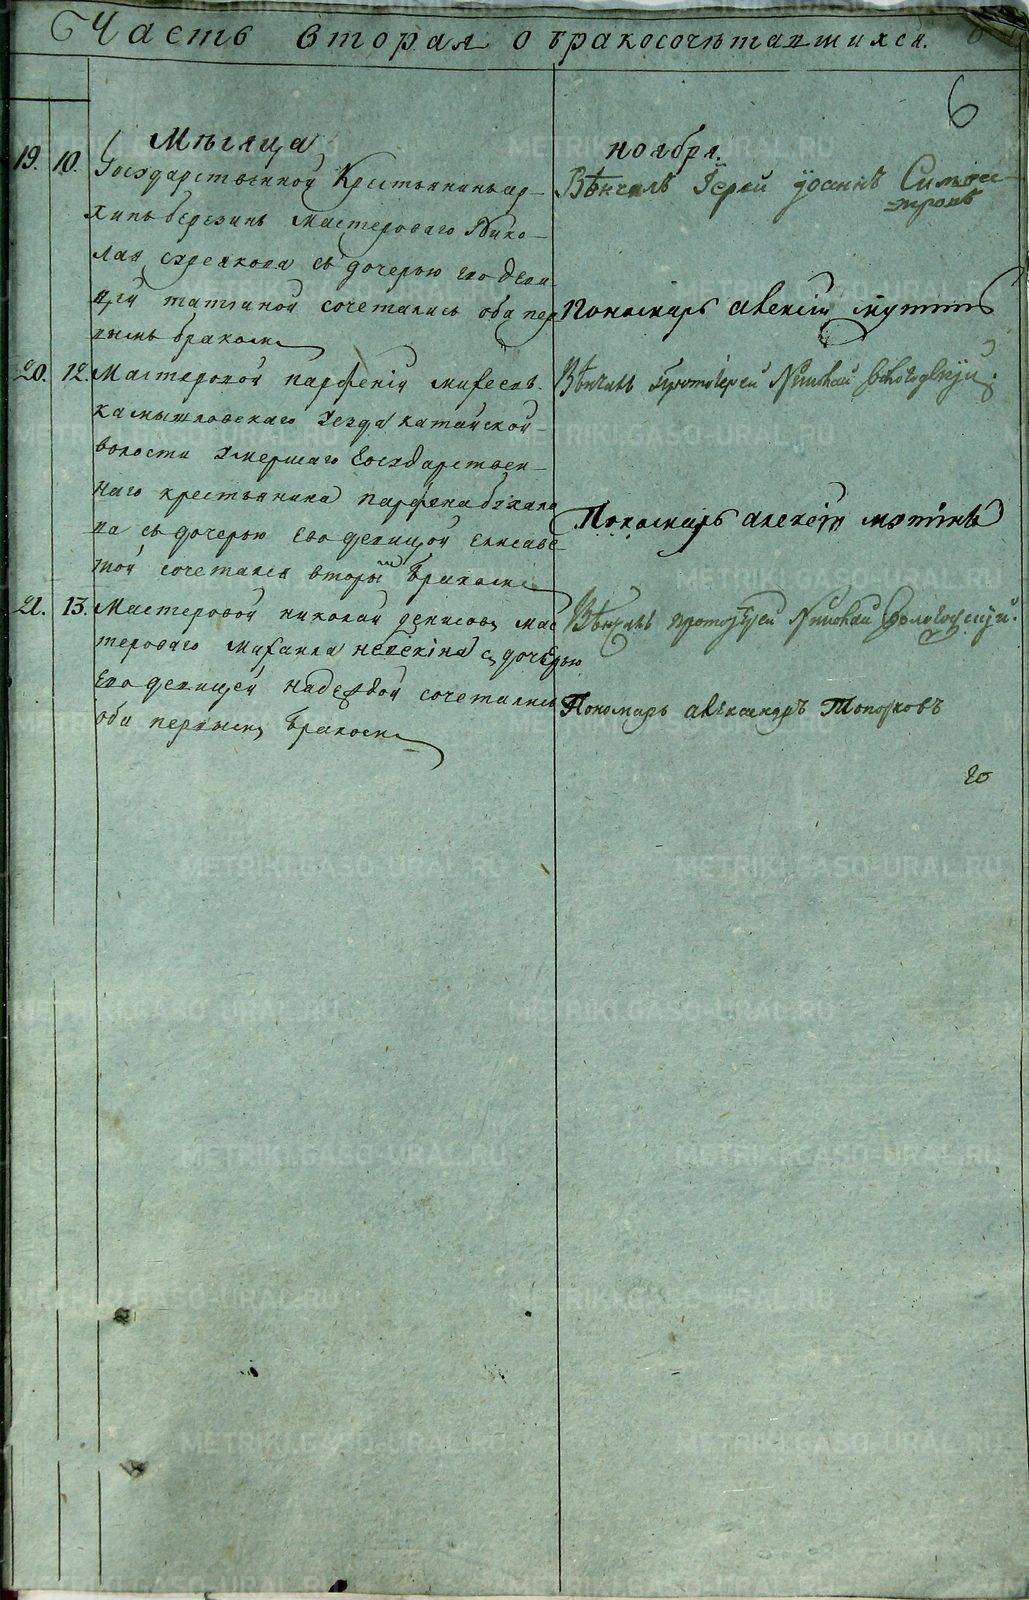 Часть вторая о бракосочетавшихся.
6
Мѣсяца
ноября.
19. 10. Государственной Крестьянинъ ар-
хипъ березинъ мастероваго Нико-
лая стрелкова съ дочерью его деви
цей татianой сочетались оба пер
вымъ бракомъ
Вѣнчалъ Іерей Іоаннъ
Пономарь алексій мутинъ
20. 12. Мастеровой парфеній
камышловскаго уезда катайской
волости умершаго Государствен-
наго крестьянина парфена
ва съ дочерью Его девицой Елисаве-
той сочетался вторымъ бракомъ
Вѣнчалъ Протоіерей Николай
Пономарь алексій мутинъ
21. 13. Мастеровой николай денисовъ мас
тероваго михаила с дочерью
Его девицей надеждой сочетались
оба первымъ бракомъ
Вѣнчалъ протоіерей Николай
Пономарь александръ Топорковъ
METRIKI.GASO-URAL.RU